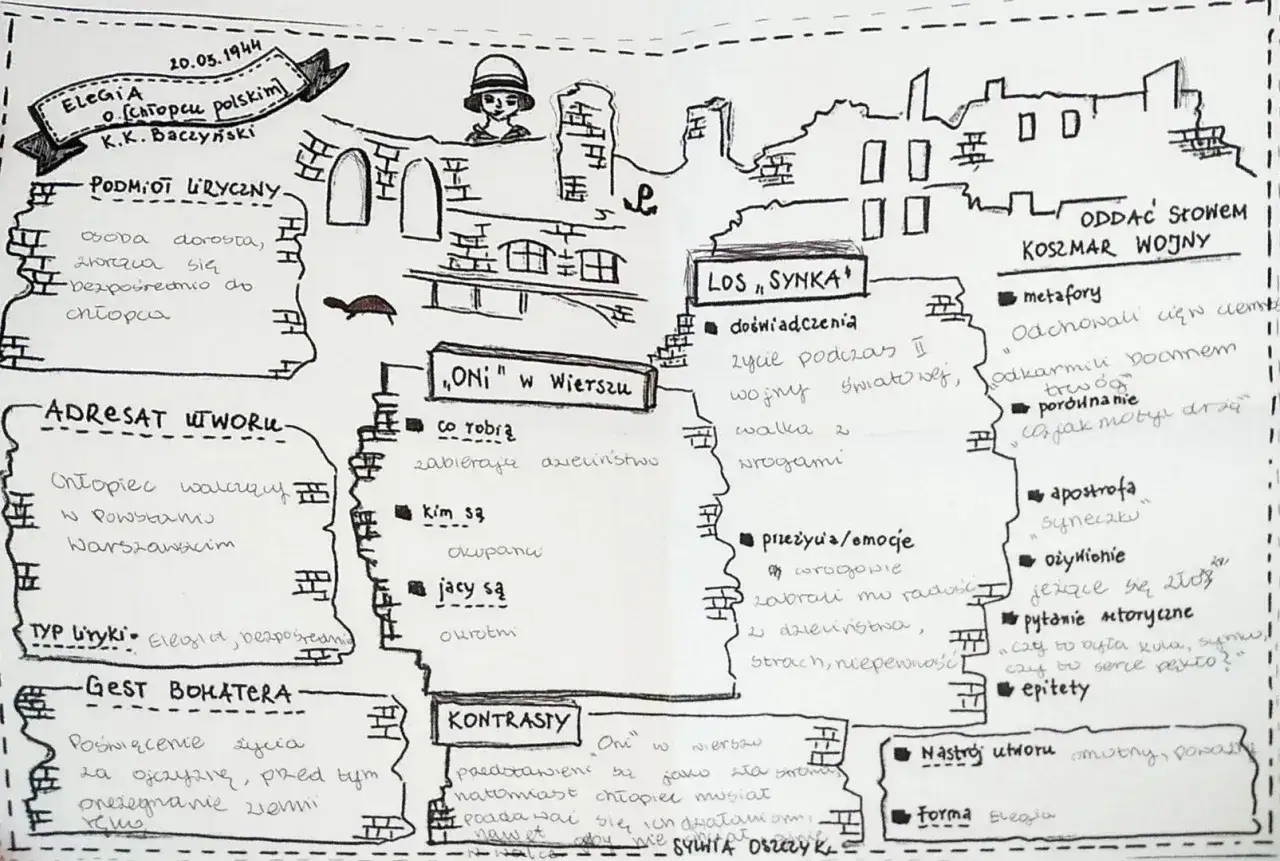 20.03.1944
ELEGIA
O [chłopcu polskim]
K.K. Baczyński
PODMIOT LIRYCZNY
osoba dorosła,
zwracająca się
bezpośrednio do
chłopca
ADRESAT UTWORU
Chłopiec walczący
w Powstaniu
Warszawskim
TYP liryki- Elegia, bezpośrednia
GEST BOHATERA
Poświęcenie życia
za ojczyznę, przed tym
przeżegnanie ziemi
ręką
„ONI" w wierszu
co robią
zabierają dzieciństwo
kim są
okupanci
jacy są
okrutni
KONTRASTY
„Oni" w wierszu
przedstawieni są jako zła strona,
natomiast chłopiec musiał
poddawać się ich działaniom,
nawet gdyby nie
w walce
LOS „SYNKA"
doświadczenia
życie podczas II
wojny światowej,
walka z
wrogami
przeżycia/emocje
wrogowie
zabrali mu radość
z dzieciństwa,
strach, niepewność
ODDAĆ SŁOWEM
KOSZMAR WOJNY
metafory
"Odchowali cię w ciemno
„odkarmili bochnem
trwóg"
porównanie
„co jak motyl drżą"
apostrofa
"syneczku"
ożywienie
jeżące się złoż
pytanie retoryczne
„czy to była kula, synku,
czy to serce pękło?"
epitety
Nastrój utworu smutny, poważny
forma Elegia
SYLWIA OSZCZYK